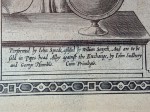 Performed by John Speede, assisted by William Rogers, And are to be
sold in Popes head Alley against the Exchange, by John Sudbury
and George Humble. Cum Privilegio